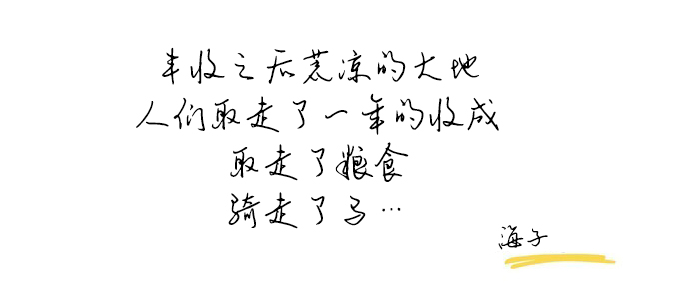 丰收之后荒凉的大地
人们取走了一年的收成
取走了粮食
骑走了马…
海子